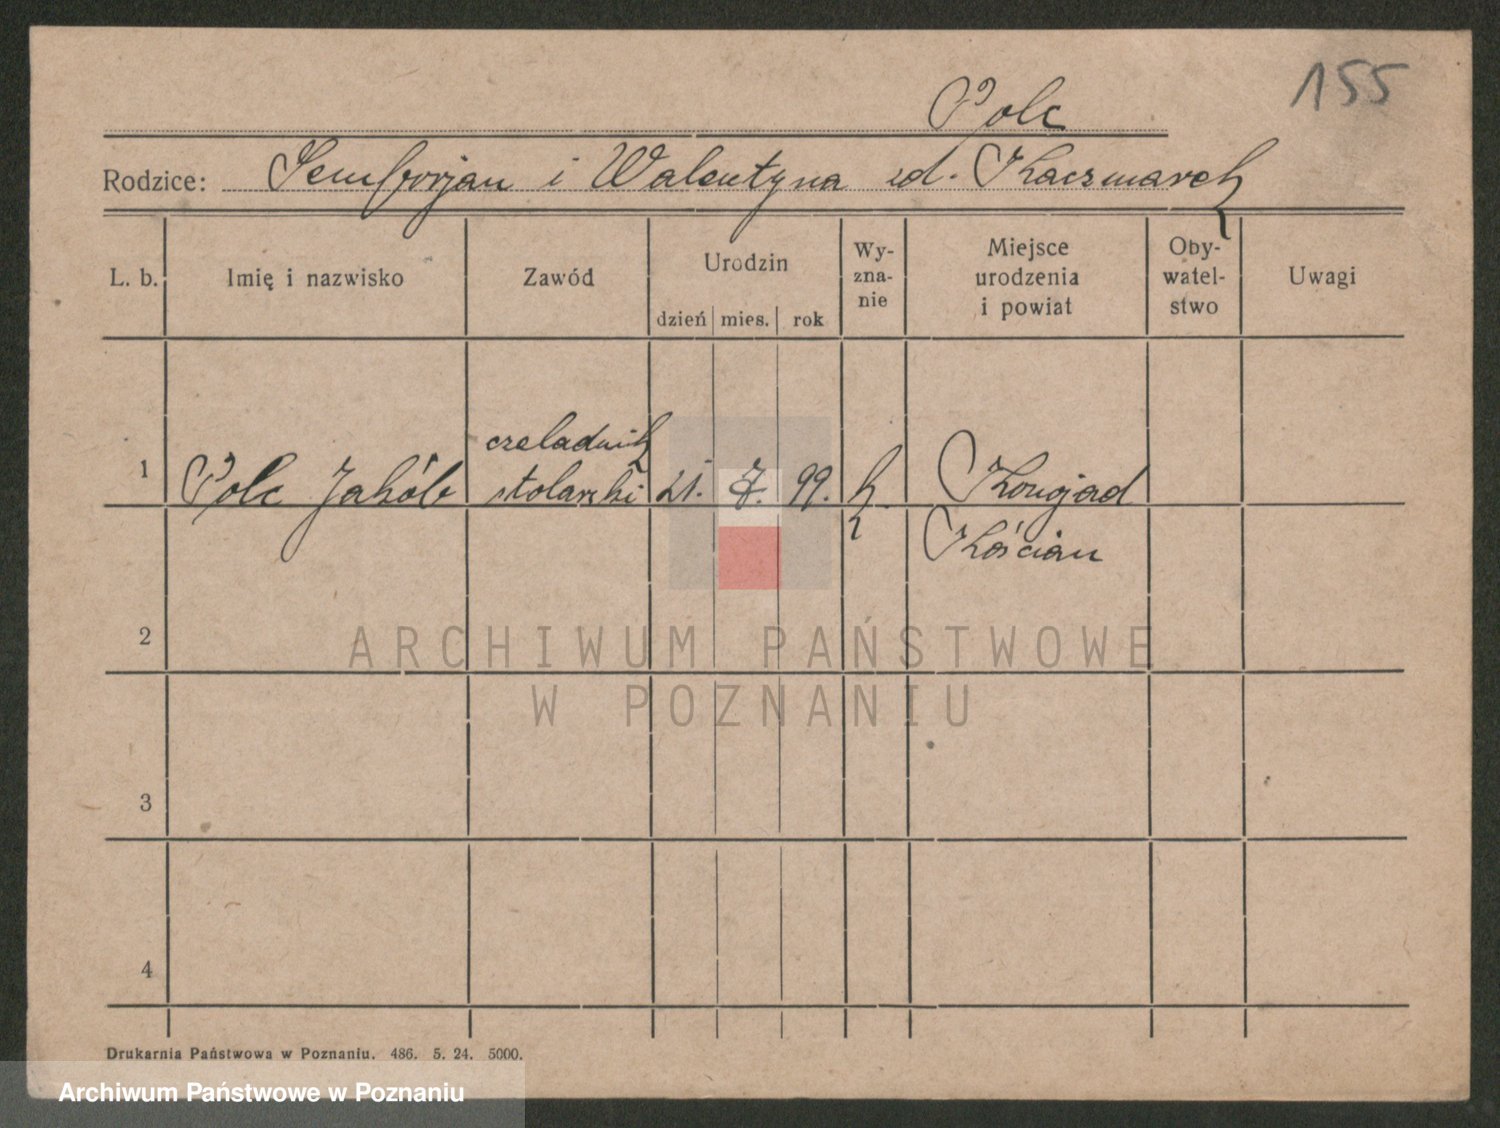 155
Polc
Rodzice: Semforjan i Walentyna zd. Kaczmarek
L. b. Imię i nazwisko Zawód Urodzin dzień mies. rok Wy-zna-nie Miejsce urodzenia i powiat Oby-watel-stwo Uwagi
czeladnik
1 Polc Jakób stolarski 21. 7. 99. k. Konojad
Kościan
2
3
4
ARCHIWUM PAŃSTWOWE
W POZNANIU
Drukarnia Państwowa w Poznaniu. 486. 5. 24. 5000.
Archiwum Państwowe w Poznaniu